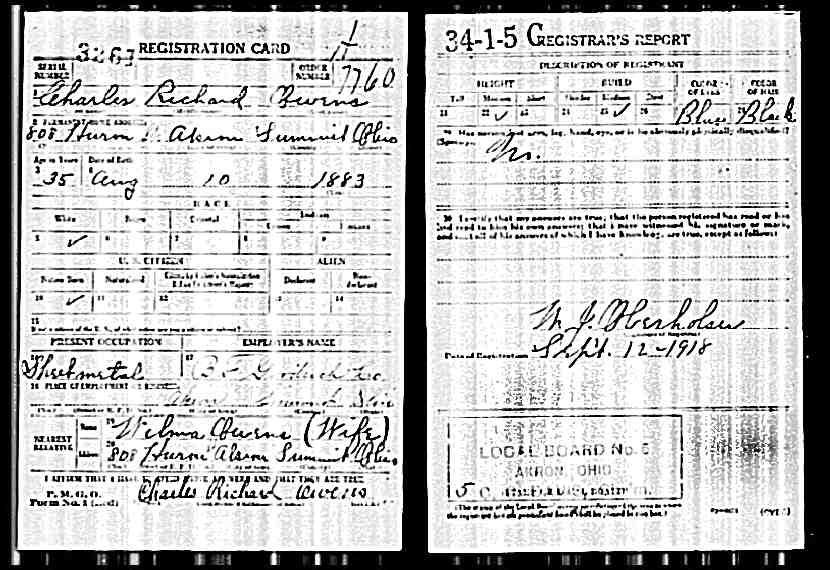 REGISTRATION CARD
SERIAL NUMBER 3267 ORDER NUMBER 7760
Charles Richard Owens
808 Huron Akron Summit Ohio
Age in Years Date of Birth
35 Aug 10 1883
RACE
White
5 ✓ 6 7 8 9
U. S. CITIZEN ALIEN
Native Born Naturalized Declarant
10 ✓ 11 12 14
15
PRESENT OCCUPATION EMPLOYER'S NAME
Sheetmetal B F Goodrich Co
PLACE OF EMPLOYMENT OR BUSINESS
Akron Summit Ohio
NEAREST RELATIVE
Name Wilma Owens (Wife)
Address 808 Huron Akron Summit Ohio
I AFFIRM THAT I HAVE VERIFIED ABOVE ANSWERS AND THAT THEY ARE TRUE
P. M. G. O.
Form No. 1 Charles Richard Owens
34-1-5 REGISTRAR'S REPORT
DESCRIPTION OF REGISTRANT
HEIGHT BUILD COLOR OF EYES COLOR OF HAIR
Tall Medium Short Slender Medium Stout
21 22 ✓ 23 24 25 ✓ 26 Blue Black
29 Has person lost arm, leg, hand, eye, or is he obviously physically disqualified?
(Specify.) No.
30 I certify that my answers are true; that the person registered has read or has
had read to him his own answers; that I have witnessed his signature or mark,
and that all of his answers of which I have knowledge are true, except as follows:
M. J. Oberholser
Date of Registration Sept. 12-1918
LOCAL BOARD No. 6
AKRON, OHIO
(The stamp of the Local Board having jurisdiction of the area in which
the registrant has his permanent home shall be placed in this box.)
(OVER)